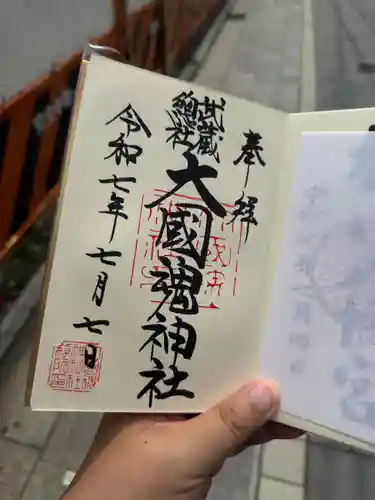 奉拝
武蔵
総社
大國魂神社
令和七年七月七日